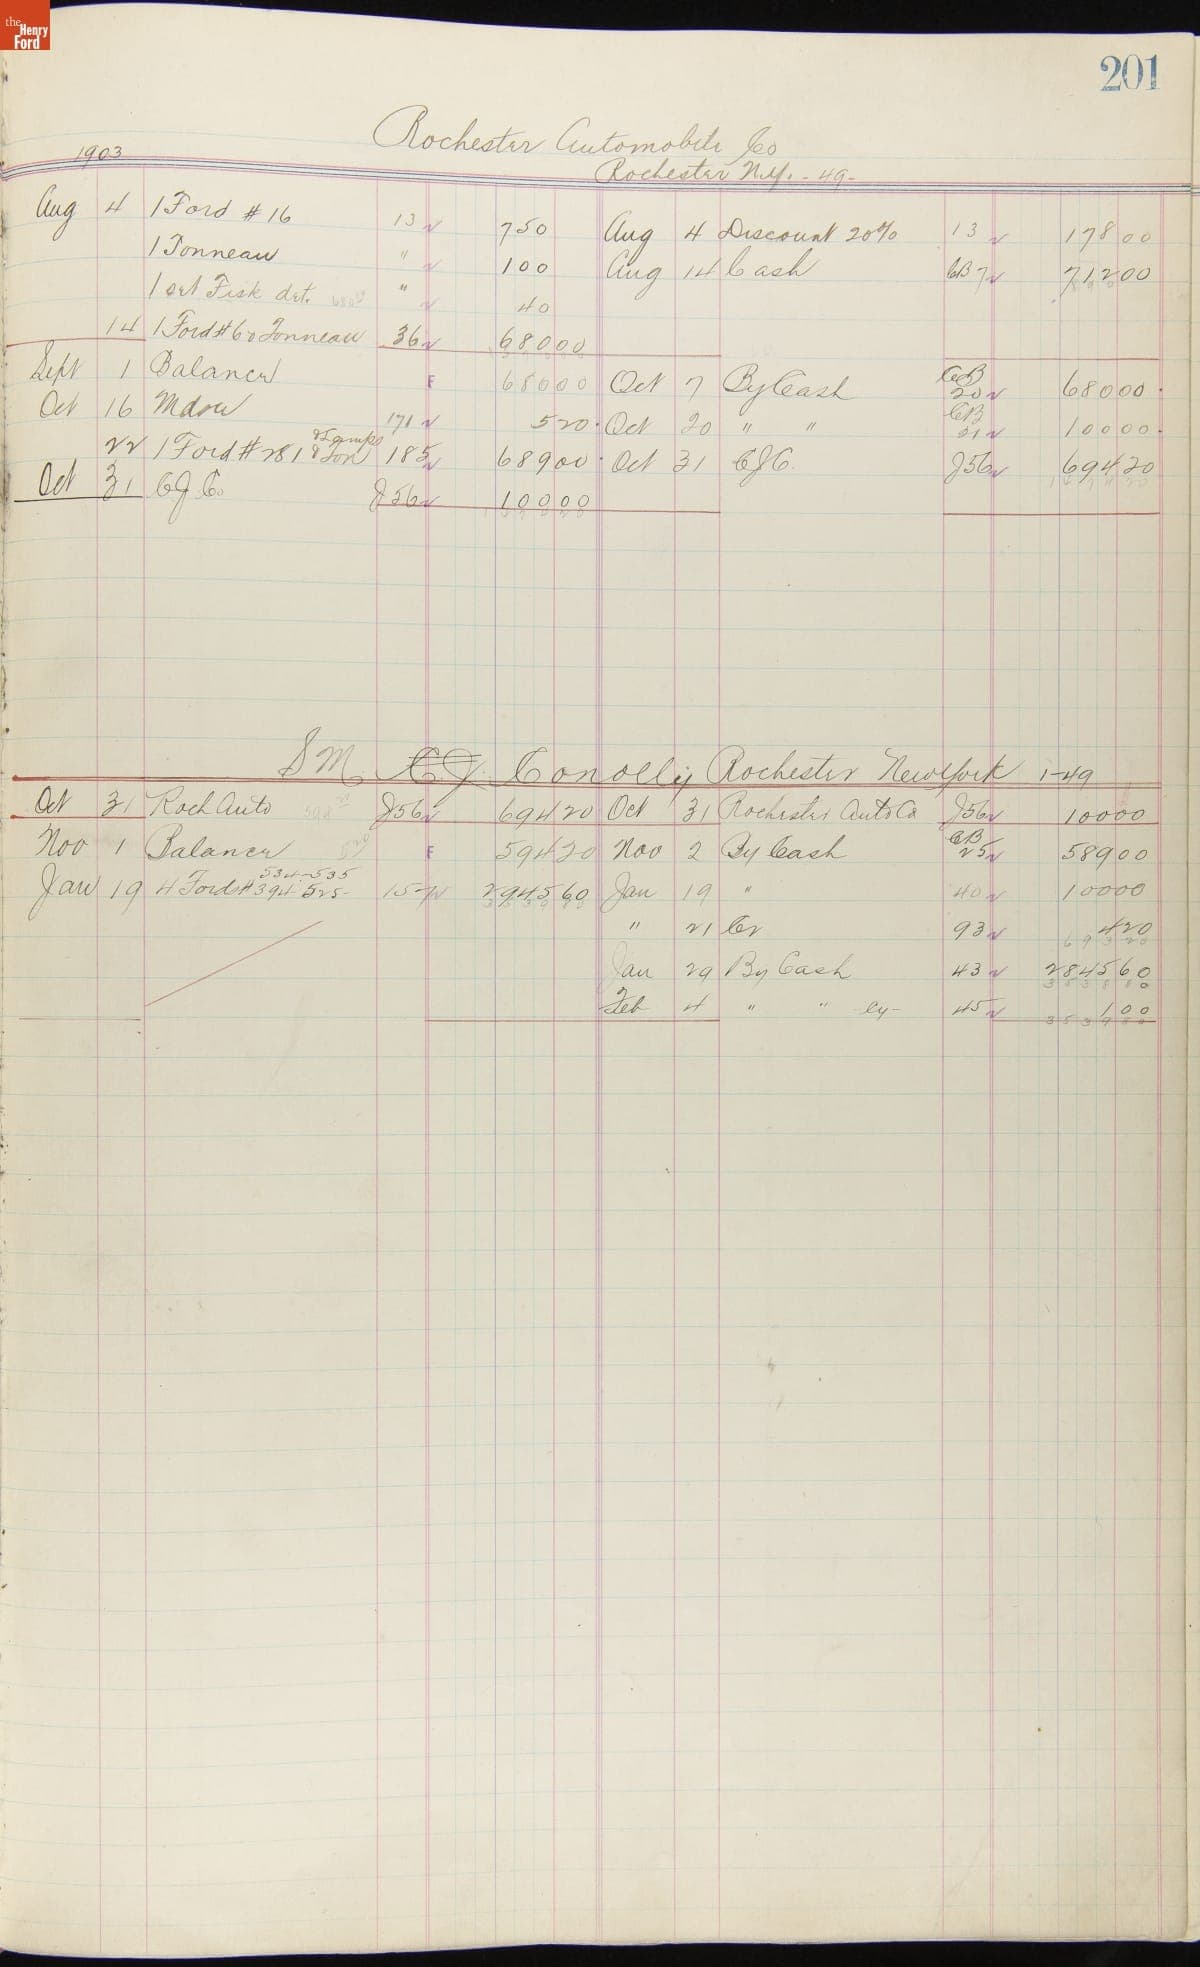 the Henry Ford
201
Rochester Automobile Co
1903 Rochester N.Y. - 49 -
Aug 4 1 Ford # 16 13 750 Aug 4 Discount 20% 13 178 00
1 Tonneau " 100 Aug 14 Cash CB 7 712 00
1 set Fisk det. " 40
14 1 Ford # 60 Tonneau 36 680 00
Sept 1 Balance F 680 00 Oct 7 By Cash CB 20 680 00
Oct 16 Mdse 171 5 20 Oct 20 " " CB 21 100 00
22 1 Ford # 281 & Lamps & Ton 185 689 00 Oct 31 C J C. J56 694 20
Oct 31 C J C. J56 100 00
S M C J Conolly Rochester New York 1-49
Oct 31 Roch Auto J56 694 20 Oct 31 Rochester Auto Co J56 100 00
Nov 1 Balance F 594 20 Nov 2 By Cash CB 25 589 00
534-535
Jan 19 4 Ford # 394-525- 157 2945 60 Jan 19 " 40 100 00
" 21 Cr 93 4 20
Jan 29 By Cash 43 2845 60
Feb 4 " " 45 1 00